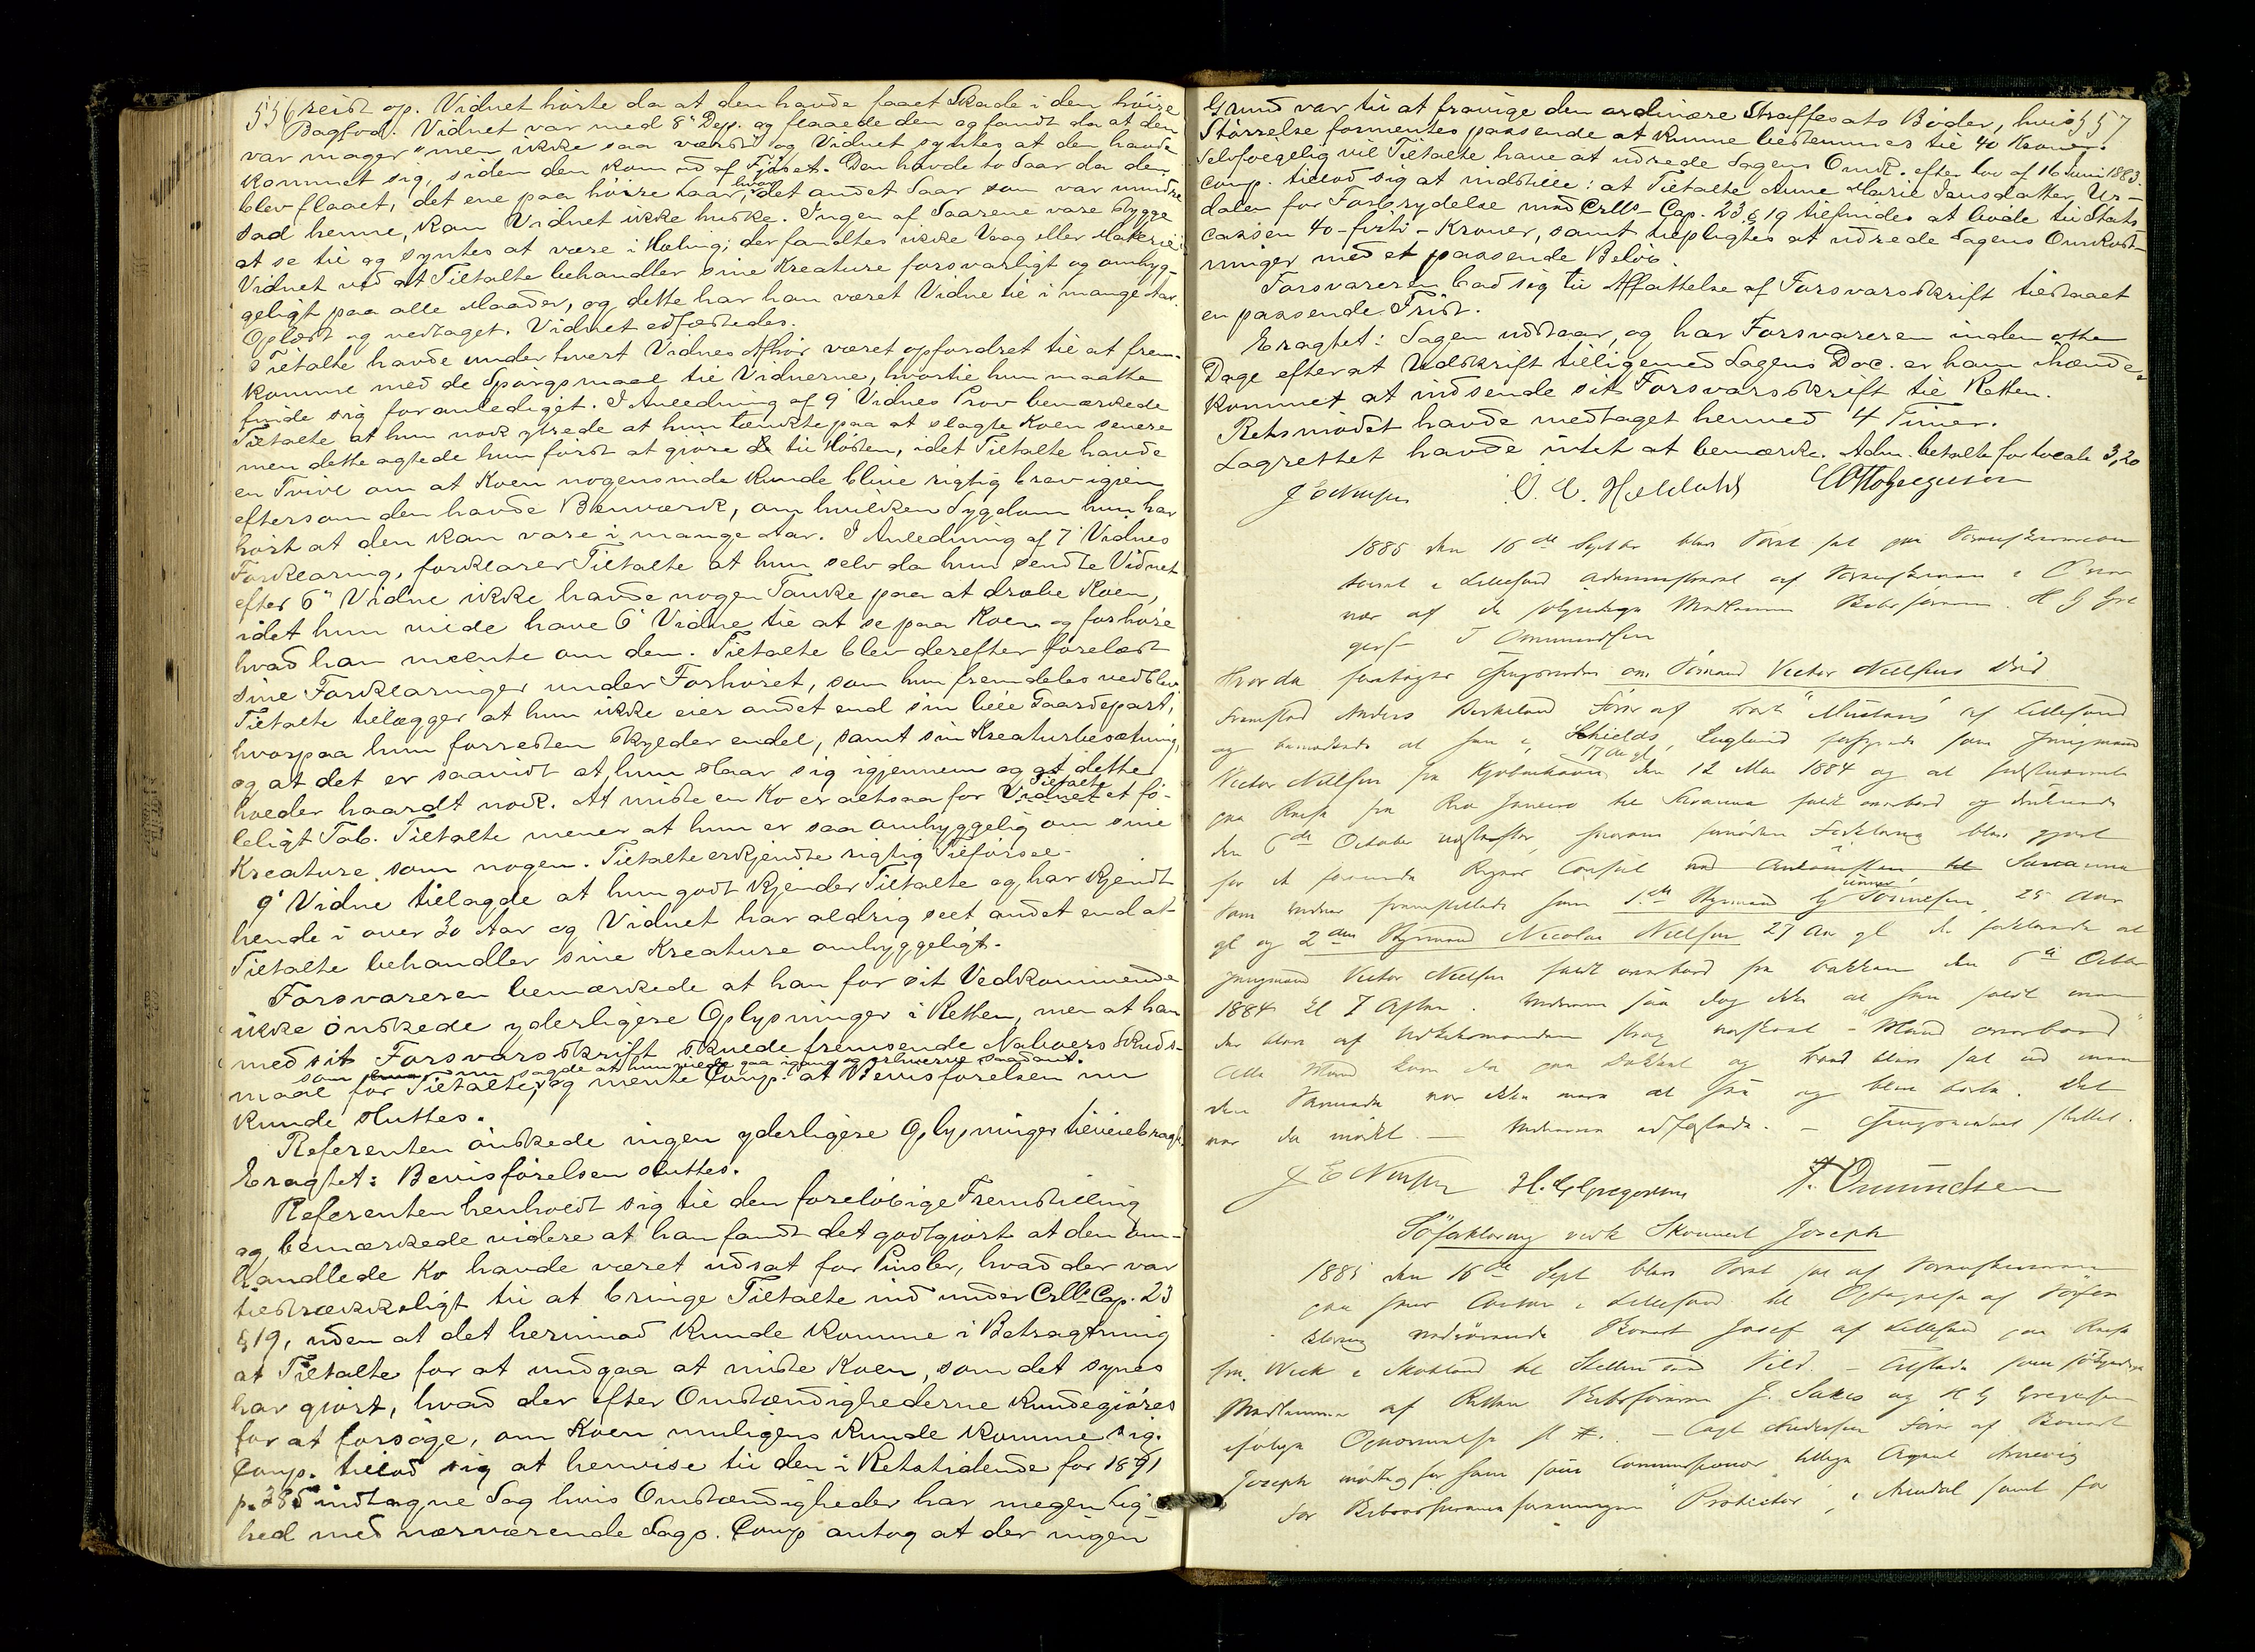 556 reist op. Vidnet hørte da at den havde faaet Skade i den høire
Bagfod. Vidnet var med 8' Dep. og flaaede den og fandt da at den
var mager "men ikke saa værst" og Vidnet syntes at den havde
kommet sig, siden den kom ud af Fjøset. Den havde to Saar da den
blev flaaet, det ene paa høire Laar, hvor det andet Saar som var mindre
sad henne, kan Vidnet ikke huske. Ingen af Saarene vare stygge
at se til og syntes at være i Heling; der fandtes ikke Vaag eller Materie.
Vidnet ved at Tiltalte behandler sine Kreature forsvarligt og omhyg-
geligt paa alle Maader, og dette har han været Vidne til i mange Aar.
Oplæst og vedtaget. Vidnet edfæstedes.
Tiltalte havde under hvert Vidnes Afhør været opfordret til at frem-
komme med de Spørgsmaal til Vidnerne, hvortil hun maatte
finde sig foranlediget. I Anledning af 9' Vidnes Prov bemærkede
Tiltalte at hun nok ytrede at hun tænkte paa at slagte Koen senere
men dette agtede hun først at gjøre til Høsten, idet Tiltalte havde
en Tvivl om at Koen nogensinde kunde blive rigtig brav igjen
eftersom den havde Benværk, om hvilken Sygdom hun har
hørt at den kan vare i mange Aar. I Anledning af 7' Vidnes
Forklaring, forklarer Tiltalte at hun selv da hun sendte Vidnet
efter 6' Vidne ikke havde nogen Tanke paa at dræbe Koen,
idet hun vilde have 6' Vidne til at se paa Koen og forhøre
hvad han meente om den. Tiltalte blev derefter forelæst
sine Forklaringer under Forhøret, som hun fremdeles vedblev.
Tiltalte tillægger at hun ikke eier andet end sin lille Gaardepart,
hvorpaa hun forresten skylder endel, samt sin Kreaturbesætning,
og at det er saavidt at hun slaar sig igjennem og at dette
holder haardt nok. At miste en Ko er altsaa for Vidnet Tiltalte et fø-
leligt Tab. Tiltalte mener at hun er saa omhyggelig om sine
Kreature som nogen. Tiltalte erkjendte rigtig Tilførsel.
9' Vidne tillagde at hun godt kjender Tiltalte og har kjendt
hende i over 30 Aar og Vidnet har aldrig seet andet end at
Tiltalte behandler sine Kreature omhyggeligt.
Forsvareren bemærkede at han for sit Vedkommende
ikke ønskede yderligere Oplysninger i Retten, men at han
med sit Forsvarsskrift skulde fremsende Naboers Skuds-
som nu sagde at hun vilde gaa igang og erhverve saadant.
maal for Tiltalte, og mente Comp. at Bevisførelsen nu
kunde sluttes.
Referenten ønskede ingen yderligere Oplysninger tilveiebragt.
Eragtet: Bevisførelsen sluttes.
Referenten henholdt sig til den foreløbige Fremstilling
og bemærkede videre at han fandt det godtgjort at den om-
handlede Ko havde været udsat for Pinsler, hvad der var
tilstrækkeligt til at bringe Tiltalte ind under Crlls Cap. 23
§ 19, uden at det herimod kunde komme i Betragtning
at Tiltalte for at undgaa at miste Koen, som det synes
har gjort, hvad der efter Omstændighederne kunde gjøres
for at forsøge, om Koen muligens kunde komme sig.
Comp. tillod sig at henvise til den i Retstidende for 1891
p. 385 indtagne Sag hvis Omstændigheder har megen Lig-
hed med nærværende Sags. Comp antog at der ingen
Grund var til at fravige den ordinære Straffesats Bøder, hvis 557
Størrelse formentes passende at kunne bestemmes til 40 Kroner.
Selvfølgelig vil Tiltalte have at udrede Sagens Omk. efter Lov af 16 Juni 1883.
Comp. tillod sig at indstille: at Tiltalte Anne Marie Jensdatter Ur-
dalen for Forbrydelse mod Crlls Cap. 23 § 19 tilfindes at bøde til Stats-
cassen 40-firti-Kroner, samt tilpligtes at udrede Sagens Omkost-
ninger med et passende Beløb.
Forsvareren bad sig til Affattelse af Forsvarsskrift tilstaaet
en passende Frist.
Eragtet: Sagen udstaar, og har Forsvareren inden otte
Dage efterat Udskrift tilligemed Sagens Doc. er ham ihænde-
kommet at indsende sit Forsvarsskrift til Retten.
Retsmødet havde medtaget henved 4 Timer.
Lagrettet havde intet at bemærke. Adm. betalte for Locale 3,20
1885 den 16de Septbr blev Ret sat paa
i Lillesand administreret af
nær af de følgende Medlemmer H G Gre
gers- T Ommundsen
Hvor da foretoges om Jømand Victor Nielsens Død
Fremstod Anders Birkeland Fører af Bark "Mustang" af Lillesand
og bemærkede at han i Shields, England forhyrede som Jungmand
17 Aar gl
Victor Nielsen fra Kjøbenhavn den 12 Mai 1884 og at
paa Reise fra Rio Janeiro til Savanna faldt overbord og druknede
den 6de October næstefter, hvorom Forklaring blev gjort
for Consul Savanna
Som Vidner fremstillede sig 1ste Styrmand G Tønnesen 25 Aar
gl og 2den Styrmand Nicolai Nielsen 27 Aar gl de forklarede at
Jungmand Victor Nielsen faldt overbord fra Bakken den 6te Octbr
1884 Kl 7 Aften. Vidnerne saa dog ikke at han faldt men
der blev af Udkiksmanden strax varskoet "Mand overbord"
Alle Mand kom da paa Dækket og Baad blev sat ud men
den var ikke mere at se og blev borte. Det
var da mørkt. — Vidnerne edfæstede. — sluttet.
J E H. G Gregersen T. Omundsen
Søforklaring vedk Skonnert Joseph
1885 den 16de Sept blev Ret sat af
paa i Lillesand til Optagelse af Søfor
klaring vedrørende Josef af Lillesand paa Reise
fra Wick i Skotland til Stettin med Sild. —
Medlemmer af Retten og H G Gregersen
ifølge Opnævnelse — Capt Andersen Fører af
Joseph mødte
for "Protector", i Arendal samt for